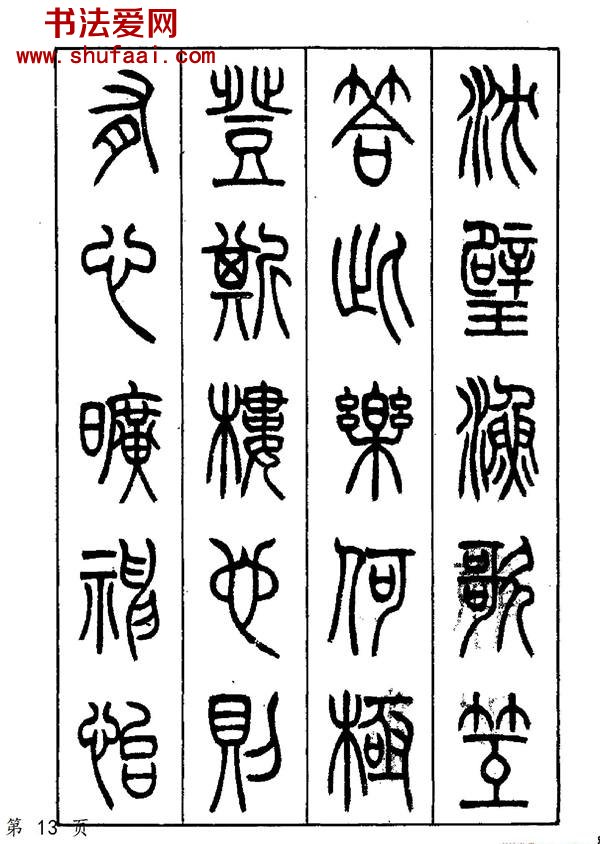 书法爱网
www.shufaai.com
沈璧漁歌笠
答此樂何極
登斯樓也則
有心曠神怡
第 13 页